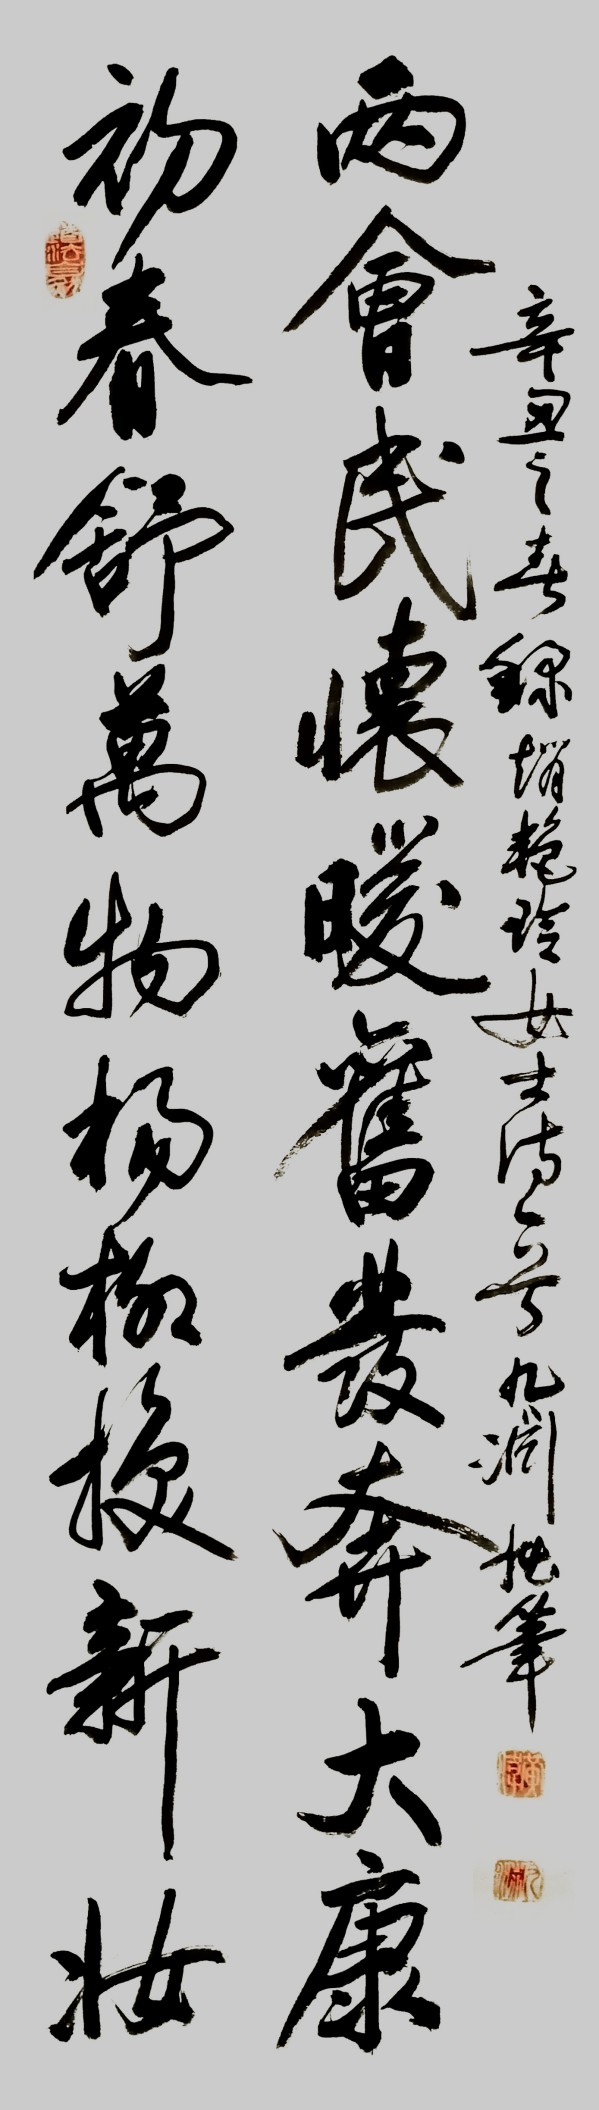 初春舒萬物楊柳換新妝
兩會民懷暖奮發奔大康
辛丑之春錄趙艷玲女士詩一首九淵拙筆